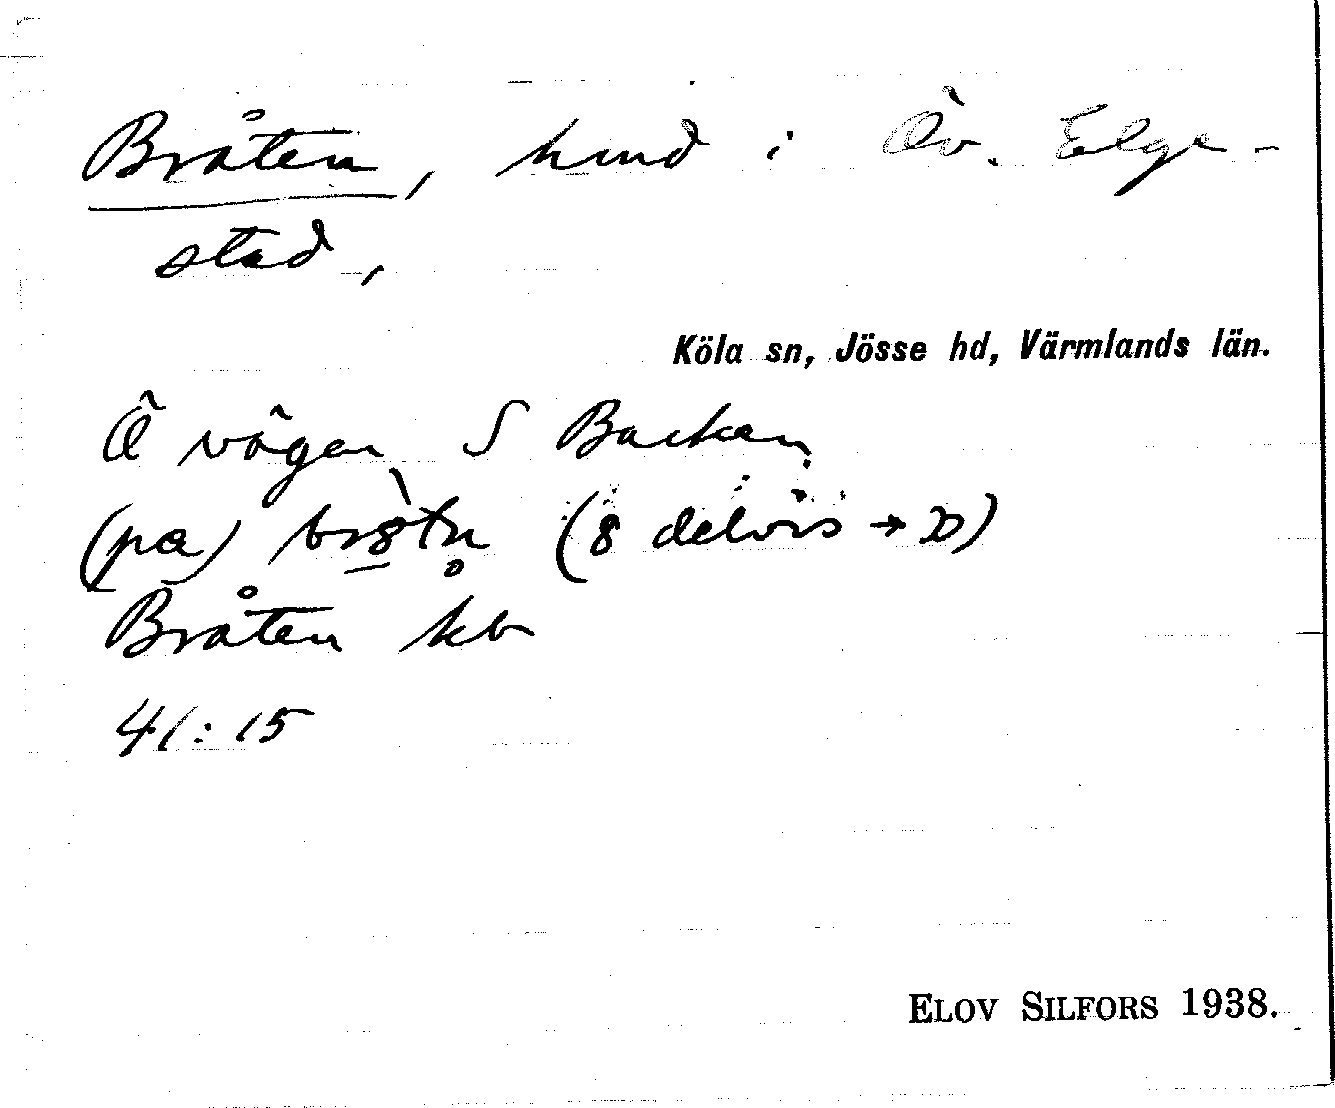 Bråten, hmd i Öv. Elge-
stad,
Köla sn, Jösse hd, Värmlands län.
Ö vägen S Backen
(pa) br8tn̥ (8 delvis → D)
Bråten kb
41:15
ELOV SILFORS 1938.